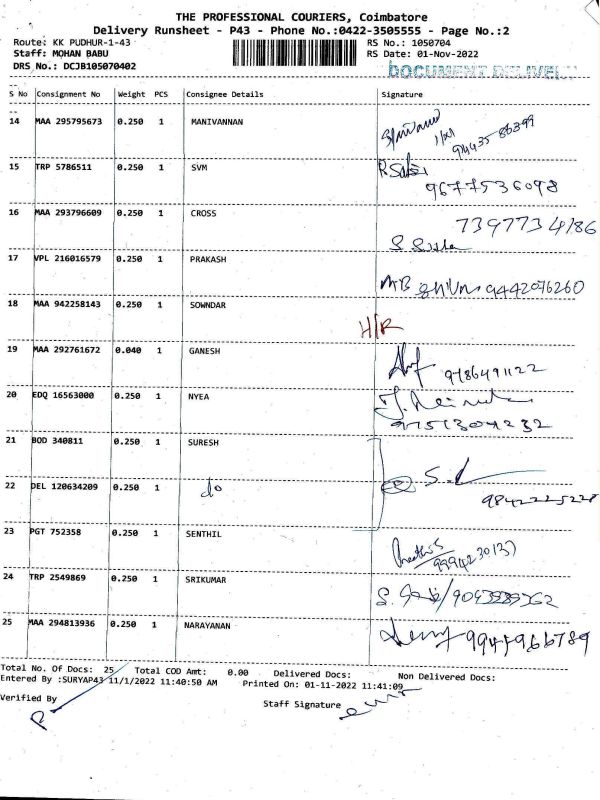 THE PROFESSIONAL COURIERS, Coimbatore
Delivery Runsheet - P43 - Phone No.:0422-3505555 - Page No.:2
Route: KK PUDHUR-1-43 RS No.: 1050704
Staff: MOHAN BABU RS Date: 01-Nov-2022
DRS No.: DCJB105070402
DOCUMENT DELIVE
S No Consignment No Weight PCS Consignee Details Signature
14 MAA 295795673 0.250 1 MANIVANNAN
1/11
94435 86399
15 TRP 5786511 0.250 1 SVM
9677536098
16 MAA 293796609 0.250 1 CROSS
7397734186
17 VPL 216016579 0.250 1 PRAKASH
9442076260
18 MAA 942258143 0.250 1 SOWNDAR
H/R
19 MAA 292761672 0.040 1 GANESH
9786491122
20 EDQ 16563000 0.250 1 NYEA
9751304232
21 BOD 340811 0.250 1 SURESH
22 DEL 120634209 0.250 1 do
9842225228
23 PGT 752358 0.250 1 SENTHIL
24 TRP 2549869 0.250 1 SRIKUMAR
25 MAA 294813936 0.250 1 NARAYANAN
Total No. Of Docs: 25 Total COD Amt: 0.00 Delivered Docs: Non Delivered Docs:
Entered By :SURYAP43 11/1/2022 11:40:50 AM Printed On: 01-11-2022 11:41:09
Verified By Staff Signature